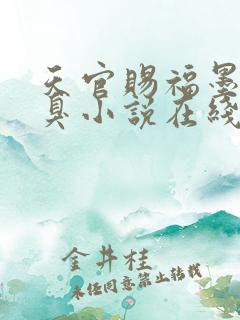 天官賜福墨
臭小說在綫
金井桂
未经同意禁止转载